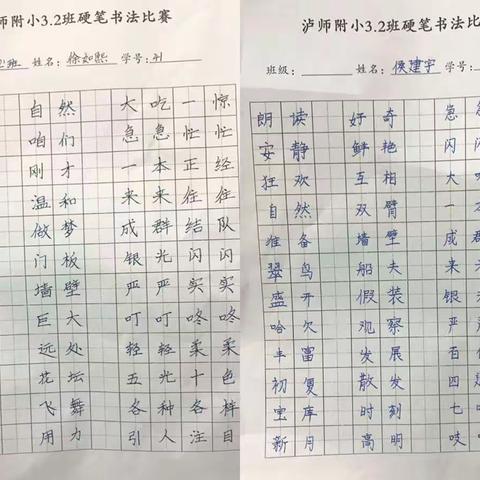 师附小3.2班硬笔书法比赛
班 姓名：徐如熙 学号：41
自然 大吃一惊
咱们 急急忙忙
刚才 一本正经
温和 来来往往
做梦 成群结队
门板 银光闪闪
墙壁 严严实实
巨大 叮叮咚咚
远处 轻轻柔柔
花坛 五光十色
飞舞 各种各样
用力 引人注目
泸师附小3.2班硬笔书法比
班级： 姓名：侯建宇 学号：
朗读 好奇 急
安静 鲜艳 闪闪
狂欢 互相 大
自然 双臂 一
准备 墙壁 成群
翠鸟 船夫 来
盛开 假装 银
哈欠 观察 严
丰富 发展 百
初夏 散发 四
宝库 时刻 七
新月 高明 吱